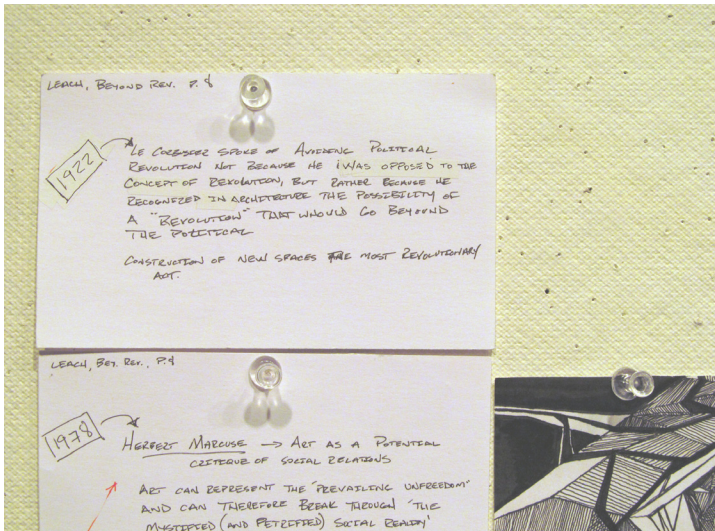 LEACH, BEYOND REV. P. 8
1922
LE CORBSIER SPOKE OF AVOIDING POLITICAL
REVOLUTION NOT BECAUSE HE WAS OPPOSED TO THE
CONCEPT OF REVOLUTION, BUT RATHER BECAUSE HE
RECOGNIZED IN ARCHITECTURE THE POSSIBILITY OF
A "REVOLUTION" THAT WHOULD GO BEYOUND
THE POLITICAL
CONSTRUCTION OF NEW SPACES THE MOST REVOLUTIONARY
ACT.
LEACH, BEY. REV., P. 8
1978
HERBERT MARCUSE → ART AS A POTENTIAL
CRITIQUE OF SOCIAL RELATIONS
ART CAN REPRESENT THE 'PREVAILING UNFREEDOM'
AND CAN THEREFORE BREAK THROUGH 'THE
MYSTIFIED (AND PETRIFIED) SOCIAL REALITY'